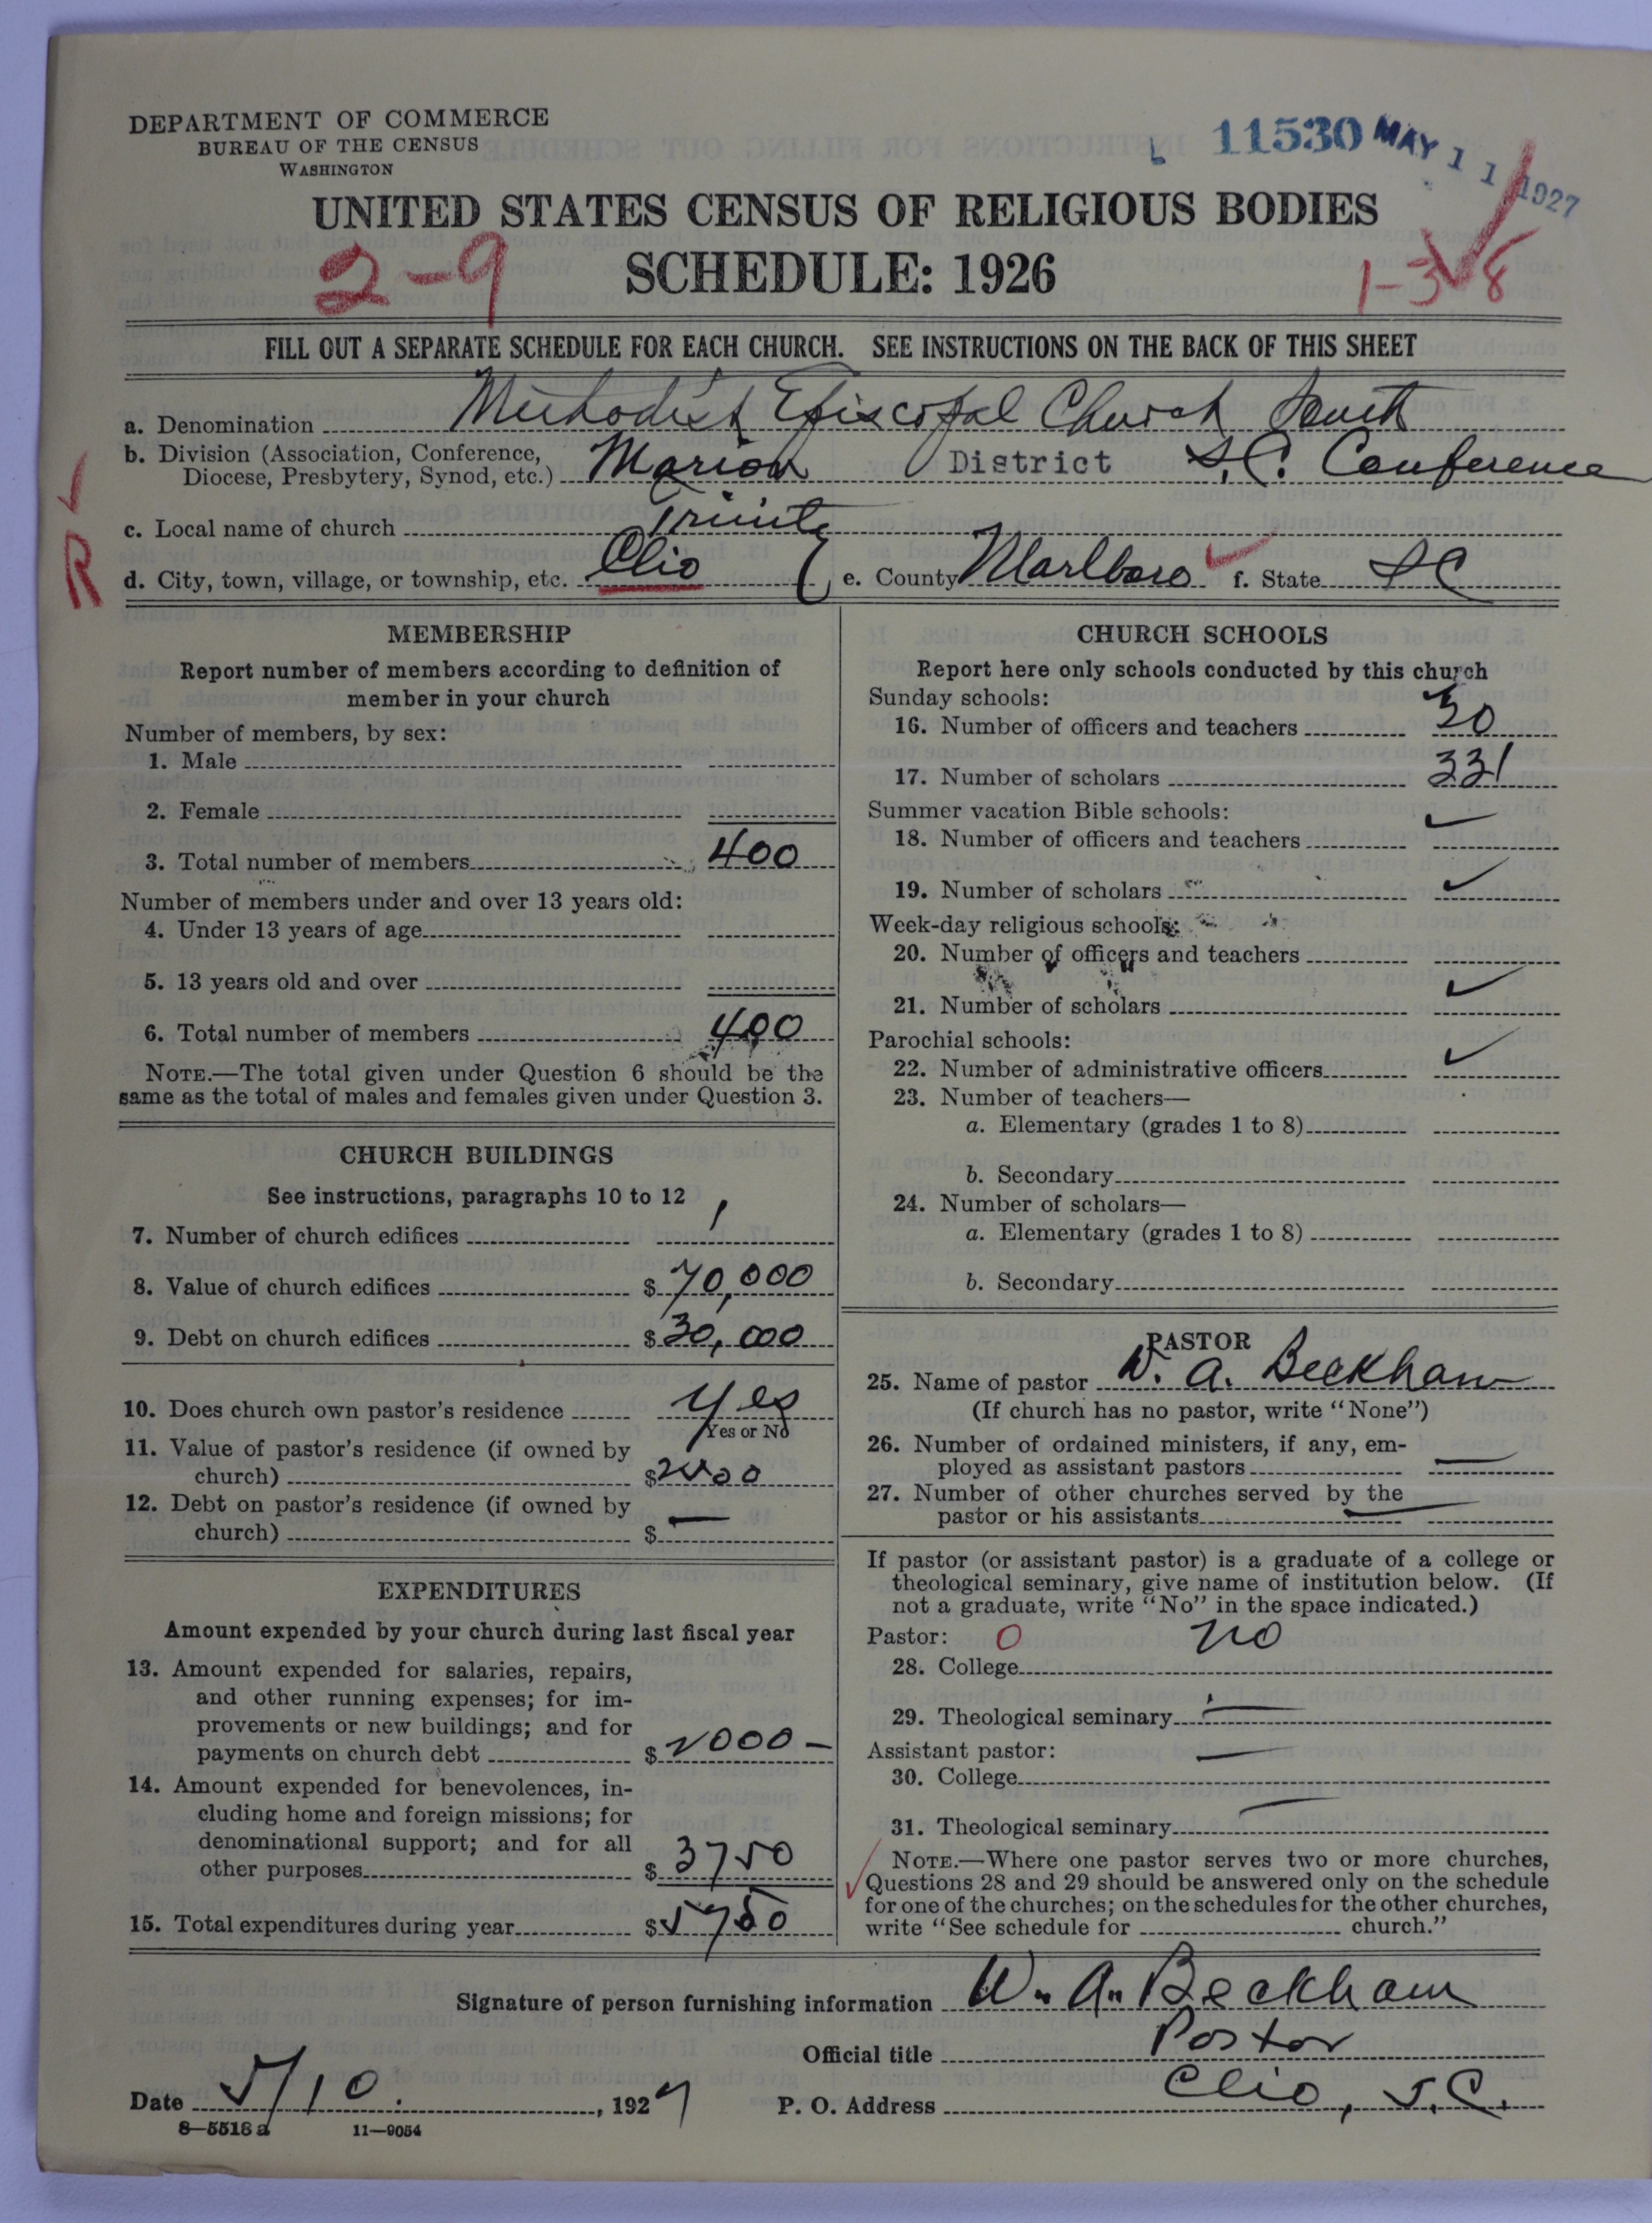 DEPARTMENT OF COMMERCE
BUREAU OF THE CENSUS
WASHINGTON
11530 MAY 11 1927
UNITED STATES CENSUS OF RELIGIOUS BODIES
2-9 SCHEDULE: 1926 1-3-8
FILL OUT A SEPARATE SCHEDULE FOR EACH CHURCH. SEE INSTRUCTIONS ON THE BACK OF THIS SHEET
a. Denomination Methodist Episcopal Church South
b. Division (Association, Conference,
Diocese, Presbytery, Synod, etc.) Marion District S.C. Conference
c. Local name of church Trinity
R
d. City, town, village, or township, etc. Clio e. County Marlboro f. State SC
MEMBERSHIP
Report number of members according to definition of
member in your church
Number of members, by sex:
1. Male
2. Female
3. Total number of members 400
Number of members under and over 13 years old:
4. Under 13 years of age
5. 13 years old and over
6. Total number of members 400
NOTE.—The total given under Question 6 should be the
same as the total of males and females given under Question 3.
CHURCH BUILDINGS
See instructions, paragraphs 10 to 12
7. Number of church edifices 1
8. Value of church edifices $ 70,000
9. Debt on church edifices $ 30,000
10. Does church own pastor's residence Yes
Yes or No
11. Value of pastor's residence (if owned by
church) $
12. Debt on pastor's residence (if owned by
church) $ —
EXPENDITURES
Amount expended by your church during last fiscal year
13. Amount expended for salaries, repairs,
and other running expenses; for im-
provements or new buildings; and for
payments on church debt $ 2000 —
14. Amount expended for benevolences, in-
cluding home and foreign missions; for
denominational support; and for all
other purposes $ 3750
15. Total expenditures during year $ 5750
CHURCH SCHOOLS
Report here only schools conducted by this church
Sunday schools:
16. Number of officers and teachers 30
17. Number of scholars 331
Summer vacation Bible schools:
18. Number of officers and teachers
19. Number of scholars
Week-day religious schools:
20. Number of officers and teachers
21. Number of scholars
Parochial schools:
22. Number of administrative officers
23. Number of teachers—
a. Elementary (grades 1 to 8)
b. Secondary
24. Number of scholars—
a. Elementary (grades 1 to 8)
b. Secondary
PASTOR
25. Name of pastor W. A. Beckham
(If church has no pastor, write "None")
26. Number of ordained ministers, if any, em-
ployed as assistant pastors —
27. Number of other churches served by the
pastor or his assistants —
If pastor (or assistant pastor) is a graduate of a college or
theological seminary, give name of institution below. (If
not a graduate, write "No" in the space indicated.)
Pastor: 0 no
28. College
29. Theological seminary —
Assistant pastor: —
30. College
31. Theological seminary —
NOTE.—Where one pastor serves two or more churches,
Questions 28 and 29 should be answered only on the schedule
for one of the churches; on the schedules for the other churches,
write "See schedule for church."
Signature of person furnishing information W. A. Beckham
Official title Pastor
Date 5/10. , 1927 P. O. Address Clio, S.C.
8—5518 a 11—9054